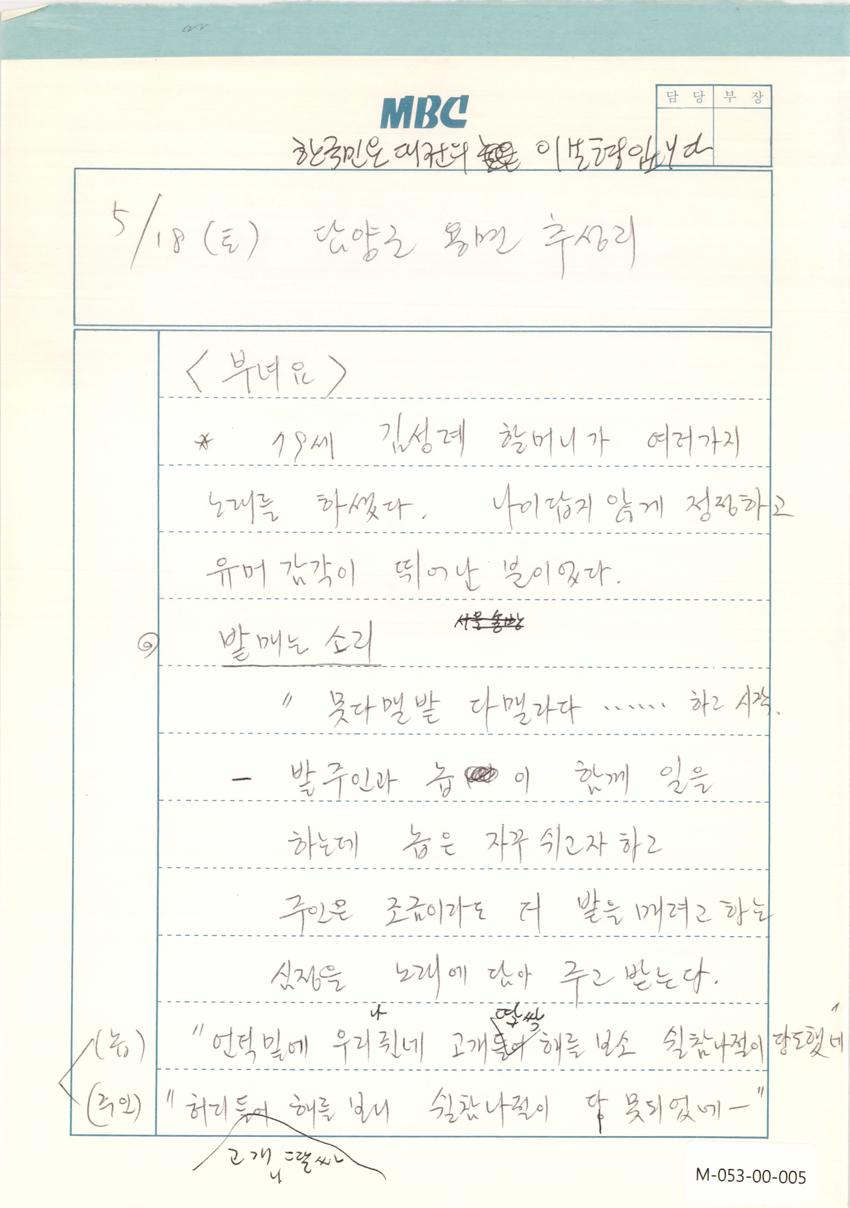 MBC
담 당 부 장
한국민은 이보형입니다
5/18 (토) 담양군 용면 추성리
<부녀요>
* 79세 김성례 할머니가 여러가지
노래를 하셨다. 나이답지 않게 정정하고
유머 감각이 뛰어난 분이었다.
① 밭매는 소리
" 못다맬밭 다맬라다 …… 하고 시작.
- 밭주인과 놉이 함께 일을
하는데 놉은 자꾸 쉬고자 하고
주인은 조금이라도 더 밭을 매려고 하는
심정을 노래에 담아 주고 받는다.
(놉) "언덕밑에 우리 쥔네 고개 해를 보소 쉴참나절이 당도했네"
(주인) "허리들어 해를 보니 쉴참나절이 당 못되었네-"
고개
M-053-00-005